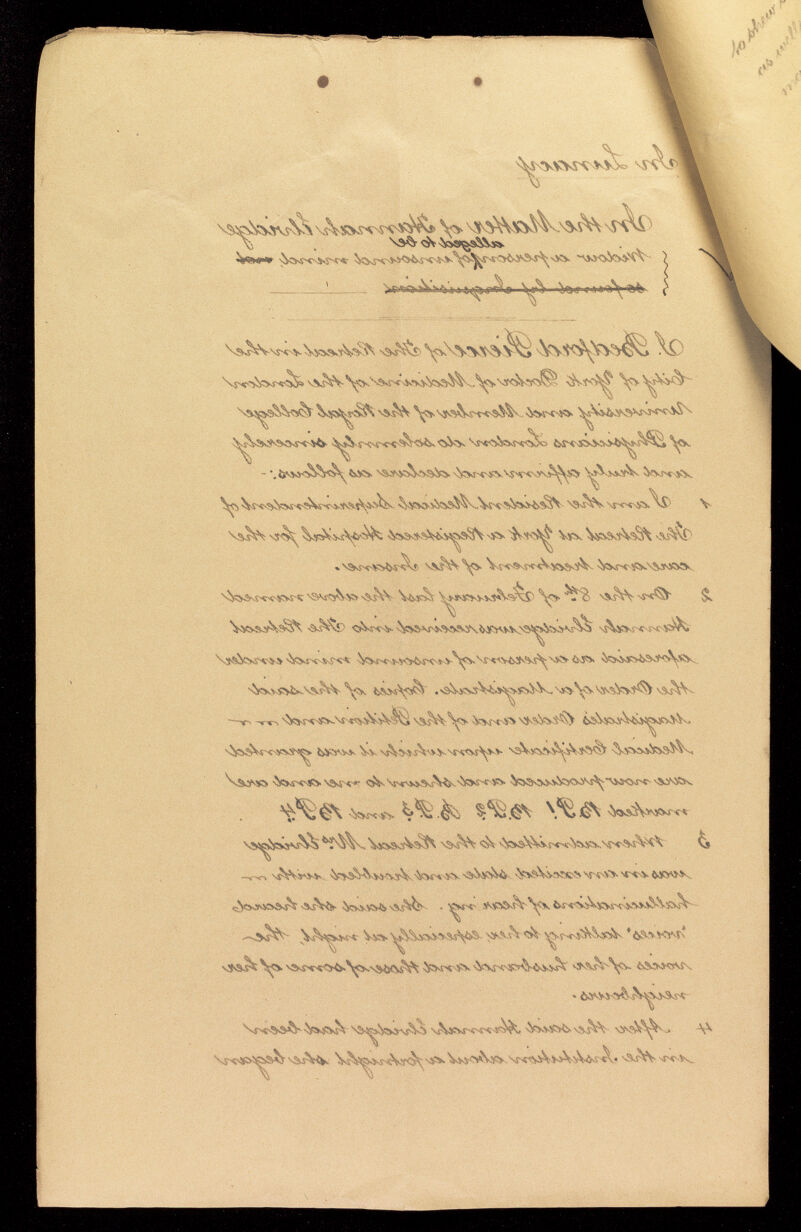 In Lunacy
In the Matter of Hannah Elridge
alleged to be
Widow a person of unsound mind not
so found by Inquisition
I Bedford Pierce of The Retreat in the
City of York Doctor of Medicine of the London
University and Member of the Royal College
of Physicians London do solemnly sincerely
and truly affirm and declare as follows:-
1 I am the Resident Medical Superintendent of
The Retreat at York a Registered Hospital for the
care and treatment of the Insane.
2 On the 8th of February last the above named
Hannah Elridge was received into The Retreat
aforesaid as a person of unsound mind under
the Order of a Magistrate. Copies of the said
Magistrate's Order and of the Petition and
Medical Certificate upon which it was granted
are now produced and shewn to me and are
marked B P.1 B P.2 B P.3 and B P.4
3 When admitted to the Retreat Mrs Elridge
was in an excited state and troubled with
hallucinations of hearing. She said she heard
"voices" talking to her especially at night, the
voices of her husband and those of some of her
neighbours.
4 After the said Hannah Elridge had been
in the Institution about a fortnight she began
to shew
as well